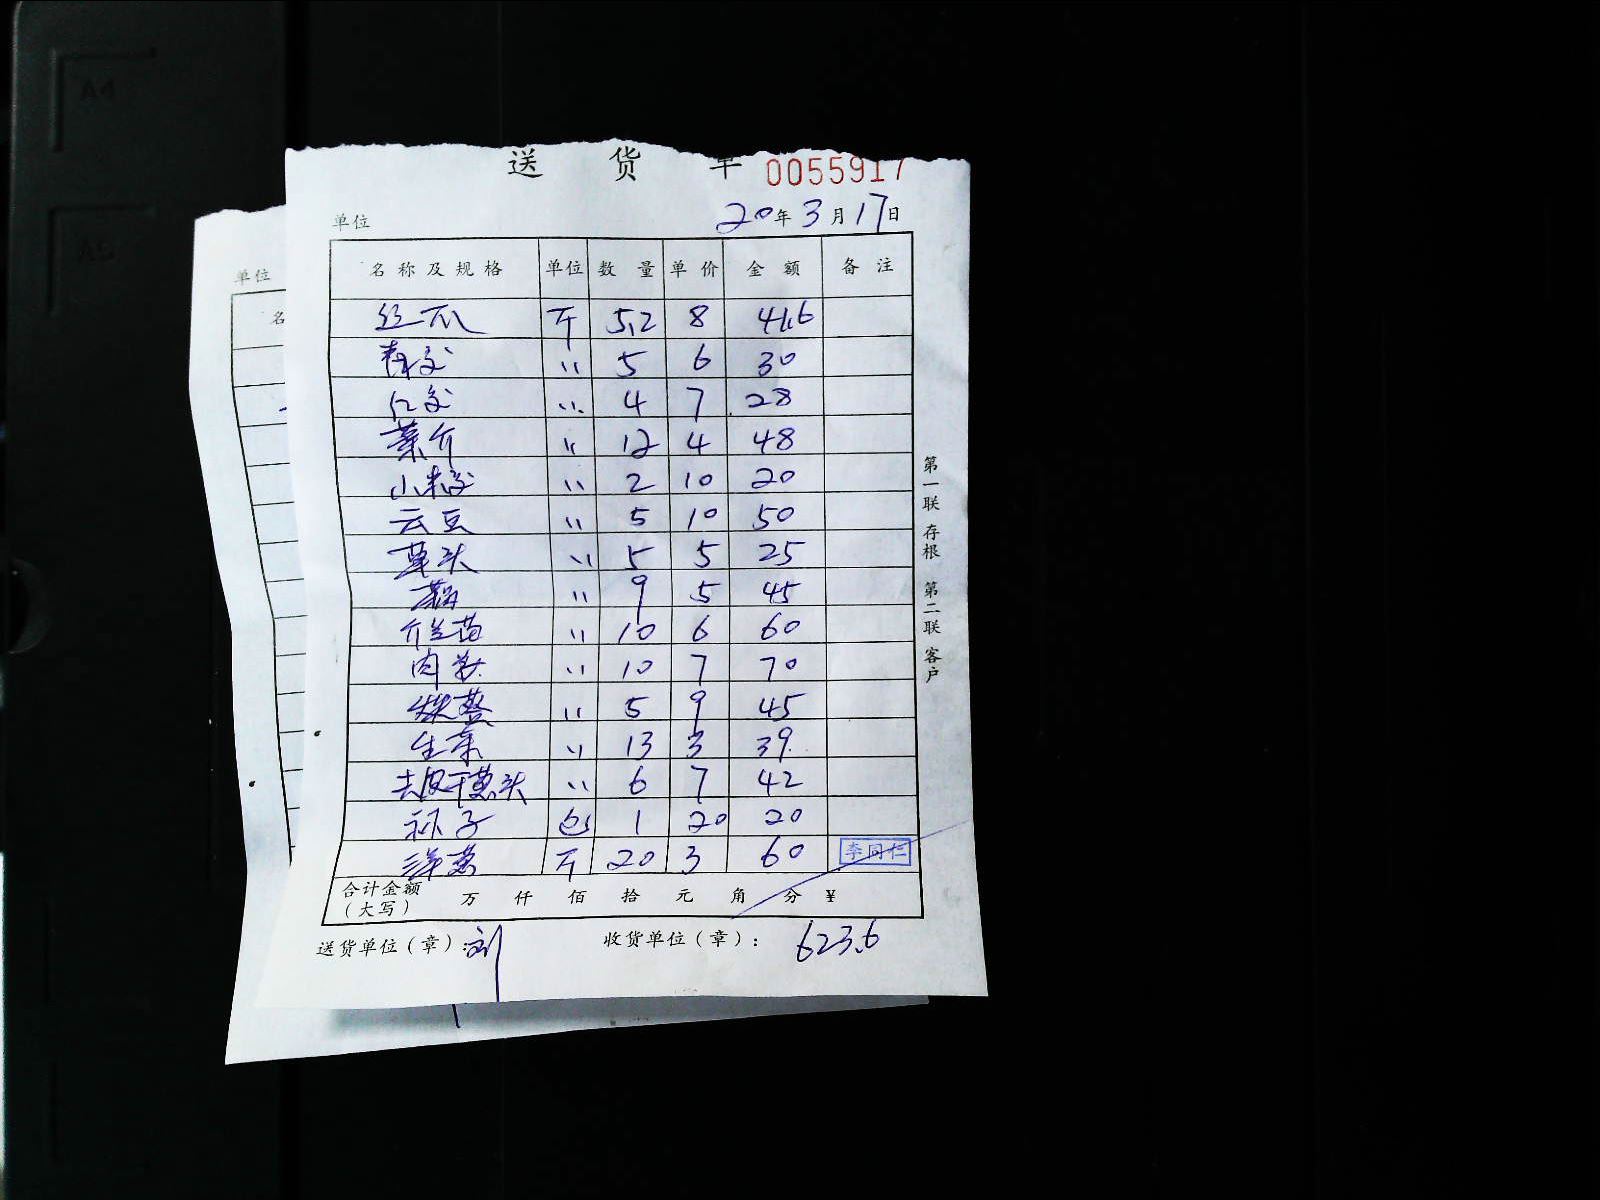 送 货 单 0055917
单位 20年3月17日
名称及规格 单位 数量 单价 金额 备注
丝瓜 斤 5.2 8 41.6
青交 〃 5 6 30
红交 〃 4 7 28
菜介 〃 12 4 48
小米交 〃 2 10 20
云豆 〃 5 10 50
草头 〃 5 5 25
〃 9 5 45
介兰苗 〃 10 6 60
肉 〃 10 7 70
〃 5 9 45
生菜 〃 13 3 39
去皮芋艿头 〃 6 7 42
子 包 1 20 20
洋葱 斤 20 3 60 李同仁
合计金额（大写） 万 仟 佰 拾 元 角 分 ¥
送货单位（章）：刘 收货单位（章）： 623.6
第一联 存根 第二联 客户
单位
名
A4
A5